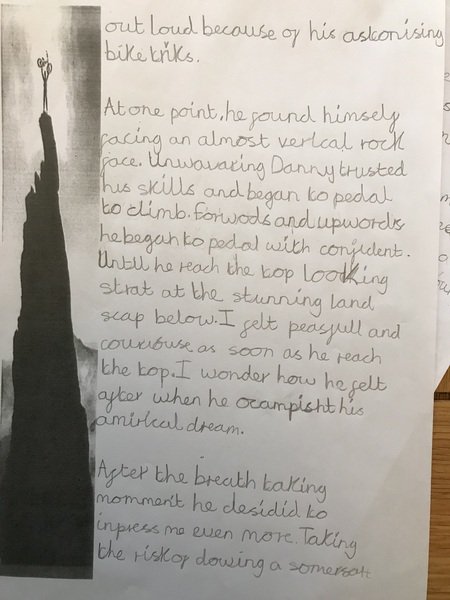 out loud because of his astonising
bike triks.
At one point, he found himself
facing an almost verical rock
face. Unwavaring Danny trusted
his skills and began to pedal
to climb. Forwods and upwords
he began to pedal with confident.
Until he reach the top looking
strat at the stunning land
scap below. I felt peasfull and
couribuse as soon as he reach
the top. I wonder how he felt
after when he ocampisht his
amirical dream.
After the breath taking
momment he desidid to
inpress me even more. Taking
the risk of dowing a somersalt